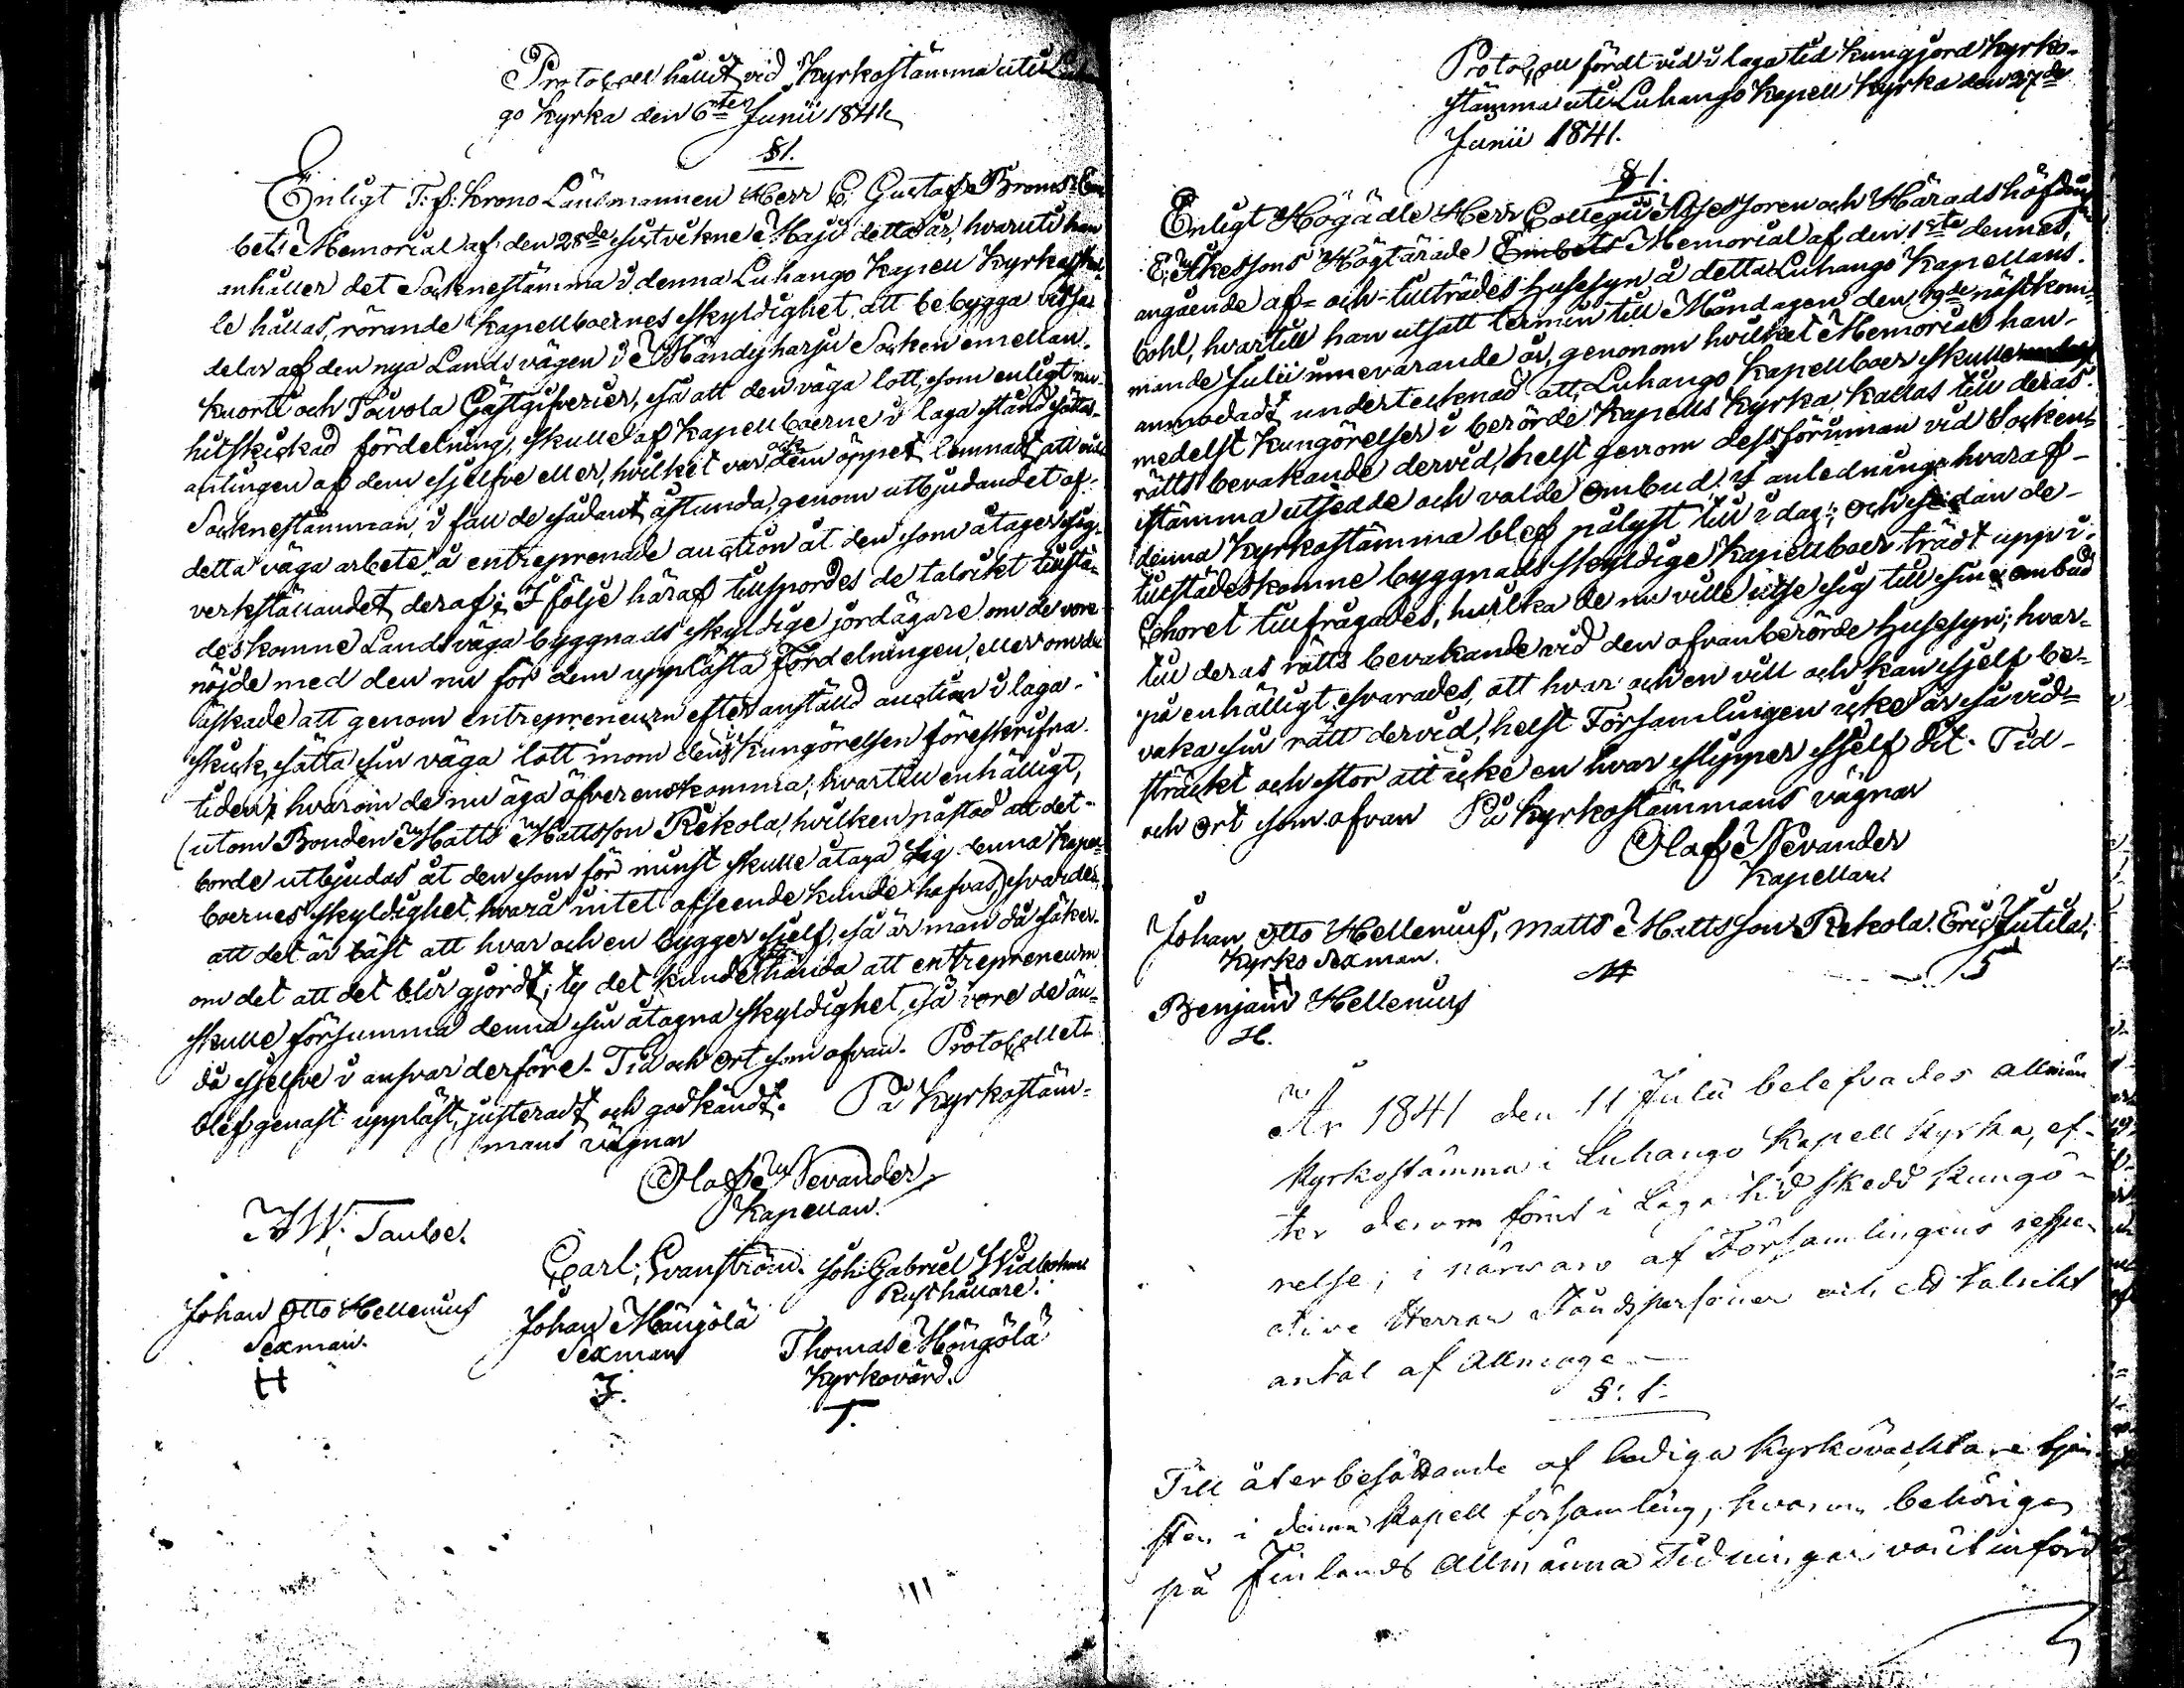 Protokoll hållit vid Kyrkostämma uti Luhan
go Kyrka den 6te Junii 1841
§1.
Enligt T. f. Krono Länsmannen Herr C. Gustaf Broms Em
bets Memorial af den 28de sistvikne Maji detta år, hvaruti han
anhåller det Socknestämma i denna Luhango Kapell Kyrka skul-
le hållas, rörande Kapellboernes skyldighet att bebygga vissa
delar af den nya Landsvägen i Mändyharju Socken emellan
Kuortti och Toivola Gästgifverier, så att den väga lott, som enligt nu
hitskickad fördelning, skulle af Kapellboerne i laga stånd sättas
antingen af dem sjelfve eller, hvilket var dem ock öppet lemnadt, att vid
Socknestämman, i fall de sådant åstunda, genom utbjudandet af
detta väga arbete å entreprenade auction åt den som åtager sig
verkställandet deraf; I följe häraf tillspordes de talrikt tillstä-
deskomne Landsväga byggnads skyldige jordägare om de vore
nöjde med den nu för dem upplästa Fördelningen, eller om de
äskade att genom entrepreneurn efter anställd auction i laga
skick sätta sin väga lott inom den i Kungörelsen föreskrifna
tiden, hvarom de nu äga öfverenskomma; hvartill enhälligt,
(utom Bonden Matts Mattsson Rekola, hvilken påstod att det
borde utbjudas åt den som för minst skulle åtaga sig denna Kapell
boernes skyldighet, hvarå intet afseende kunde hafvas) svarades
att det är bäst att hvar och en bygger sjelf, så är man då säker
om det att det blir gjordt; ty det kunde hända att entrepreneurn
skulle försumma denna sin åtagna skyldighet, så vore de än-
då sjelfve i ansvar derföre. Tid och ort som ofvan. Protokollet
blef genast uppläst, justeradt och godkändt. På Kyrkostäm-
mans vägnar
Olof Nevander
Kapellan.
A W. Taube.
Carl. Svanström. Joh: Gabriel Widbohm
Rusthållare.
Johan Otto Hellenius
Sexman.
H
Johan Mängölä
Sexman
J.
Thomas Höngölä
Kyrkovärd.
T.
Protokoll fördt vid i laga tid kungjord Kyrko-
stämma uti Luhango Kapell Kyrka den 27de
Junii 1841.
§1.
Enligt Högädle Herr Collegii Assessoren och Häradshöfding
E. Åkessons Högtärade Embets Memorial af den 1ste dennes,
angående af- och tillträdes Husesyn å detta Luhango Kapellans-
bohl, hvartill han utsatt termin till Måndagen den 19de nästkom-
mande Julii innevarande år, genonom hvilket Memorial han
anmodadt undertecknad att, Luhango Kapellboer skulle
medelst Kungörelser i berörde Kapells Kyrka, kallas till deras
rätts bevakande dervid, helst genom dessförinnan vid Socken-
stämma utsedde och valde ombud. I anledning hvaraf
denna Kyrkostämma blef pålyst till i dag; och sedan de
tillstädeskomne byggnads skyldige Kapellboer trädt upp i
Choret tillfrågades, hvilka de nu ville utse sig till sina ombud
till deras rätts bevakande vid den ofvanberörde Husesyn; hvar-
på enhälligt svarades, att hvar och en vill och kan sjelf be-
vaka sin rätt dervid, helst Församlingen icke är så vid-
sträckt och stor, att icke en hvar slipper sjelf dit. Tid
och ort som ofvan På Kyrkostämmans vägnar
Olof Nevander
Kapellan
Johan Otto Hellenius, Matts Mattsson Rekola. Eric Jutila,
Kyrko Sexman.
H
Benjam Hellenius
H.
År 1841 den 11 Julii belefvades allmän
Kyrkostämma i Luhango Kapell Kyrka, ef-
ter derom förut i laga tid skedd kungö-
relse, i närvaro af Församlingens respec
ative Herrar Ståndspersoner och ett talrikt
antal af Allmoge.
§: 1.
Till återbesättande af lediga Kyrkovachtare tjen
sten i denna Kapell församling, hvarom behörigen
på Finlands Allmänna Tidningar varit införd